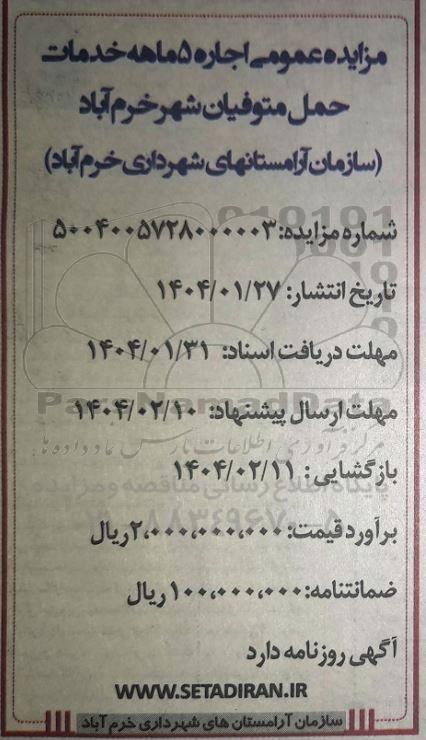 مزایده عمومی اجاره ۵ ماهه خدمات
حمل متوفیان شهر خرم آباد
(سازمان آرامستانهای شهرداری خرم آباد)
شماره مزایده: ۵۰۰۴۰۰۵۷۲۸۰۰۰۰۰۳
تاریخ انتشار: ۱۴۰۴/۰۱/۲۷
مهلت دریافت اسناد: ۱۴۰۴/۰۱/۳۱
مهلت ارسال پیشنهاد: ۱۴۰۴/۰۲/۱۰
بازگشایی: ۱۴۰۴/۰۲/۱۱
برآورد قیمت: ۲،۰۰۰،۰۰۰،۰۰۰ ریال
ضمانتنامه: ۱۰۰،۰۰۰،۰۰۰ ریال
آگهی روزنامه دارد
WWW.SETADIRAN.IR
سازمان آرامستان های شهرداری خرم آباد
ParsNamadData
پایگاه اطلاع رسانی مناقصه و مزایده